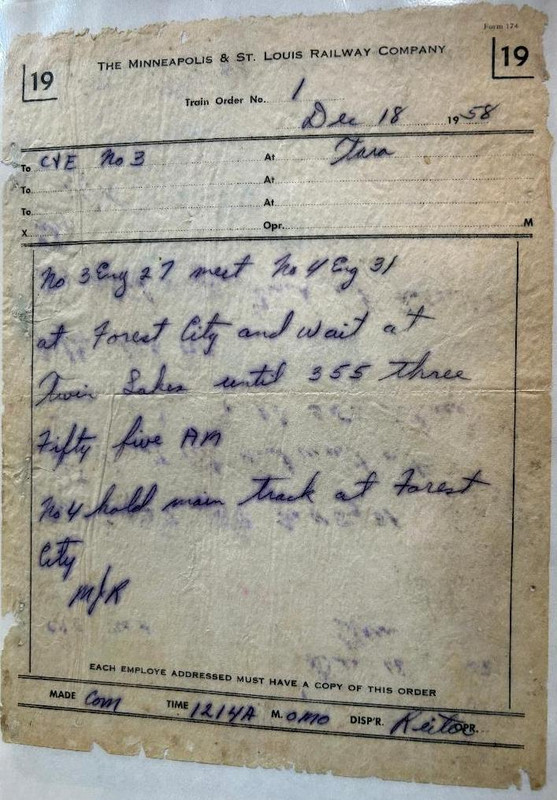 Form 174
19 THE MINNEAPOLIS & ST. LOUIS RAILWAY COMPANY 19
Train Order No. 1
Dec 18 1958
To C&E No 3 At Tara
To At
To At
X Opr. M
No 3 Eng 27 meet No 4 Eng 31
at Forest City and wait at
Twin Lakes until 355 three
Fifty five AM
No 4 hold main track at Forest
City
MJR
EACH EMPLOYE ADDRESSED MUST HAVE A COPY OF THIS ORDER
MADE Com TIME 1214A M. OMO DISP'R. OPR.